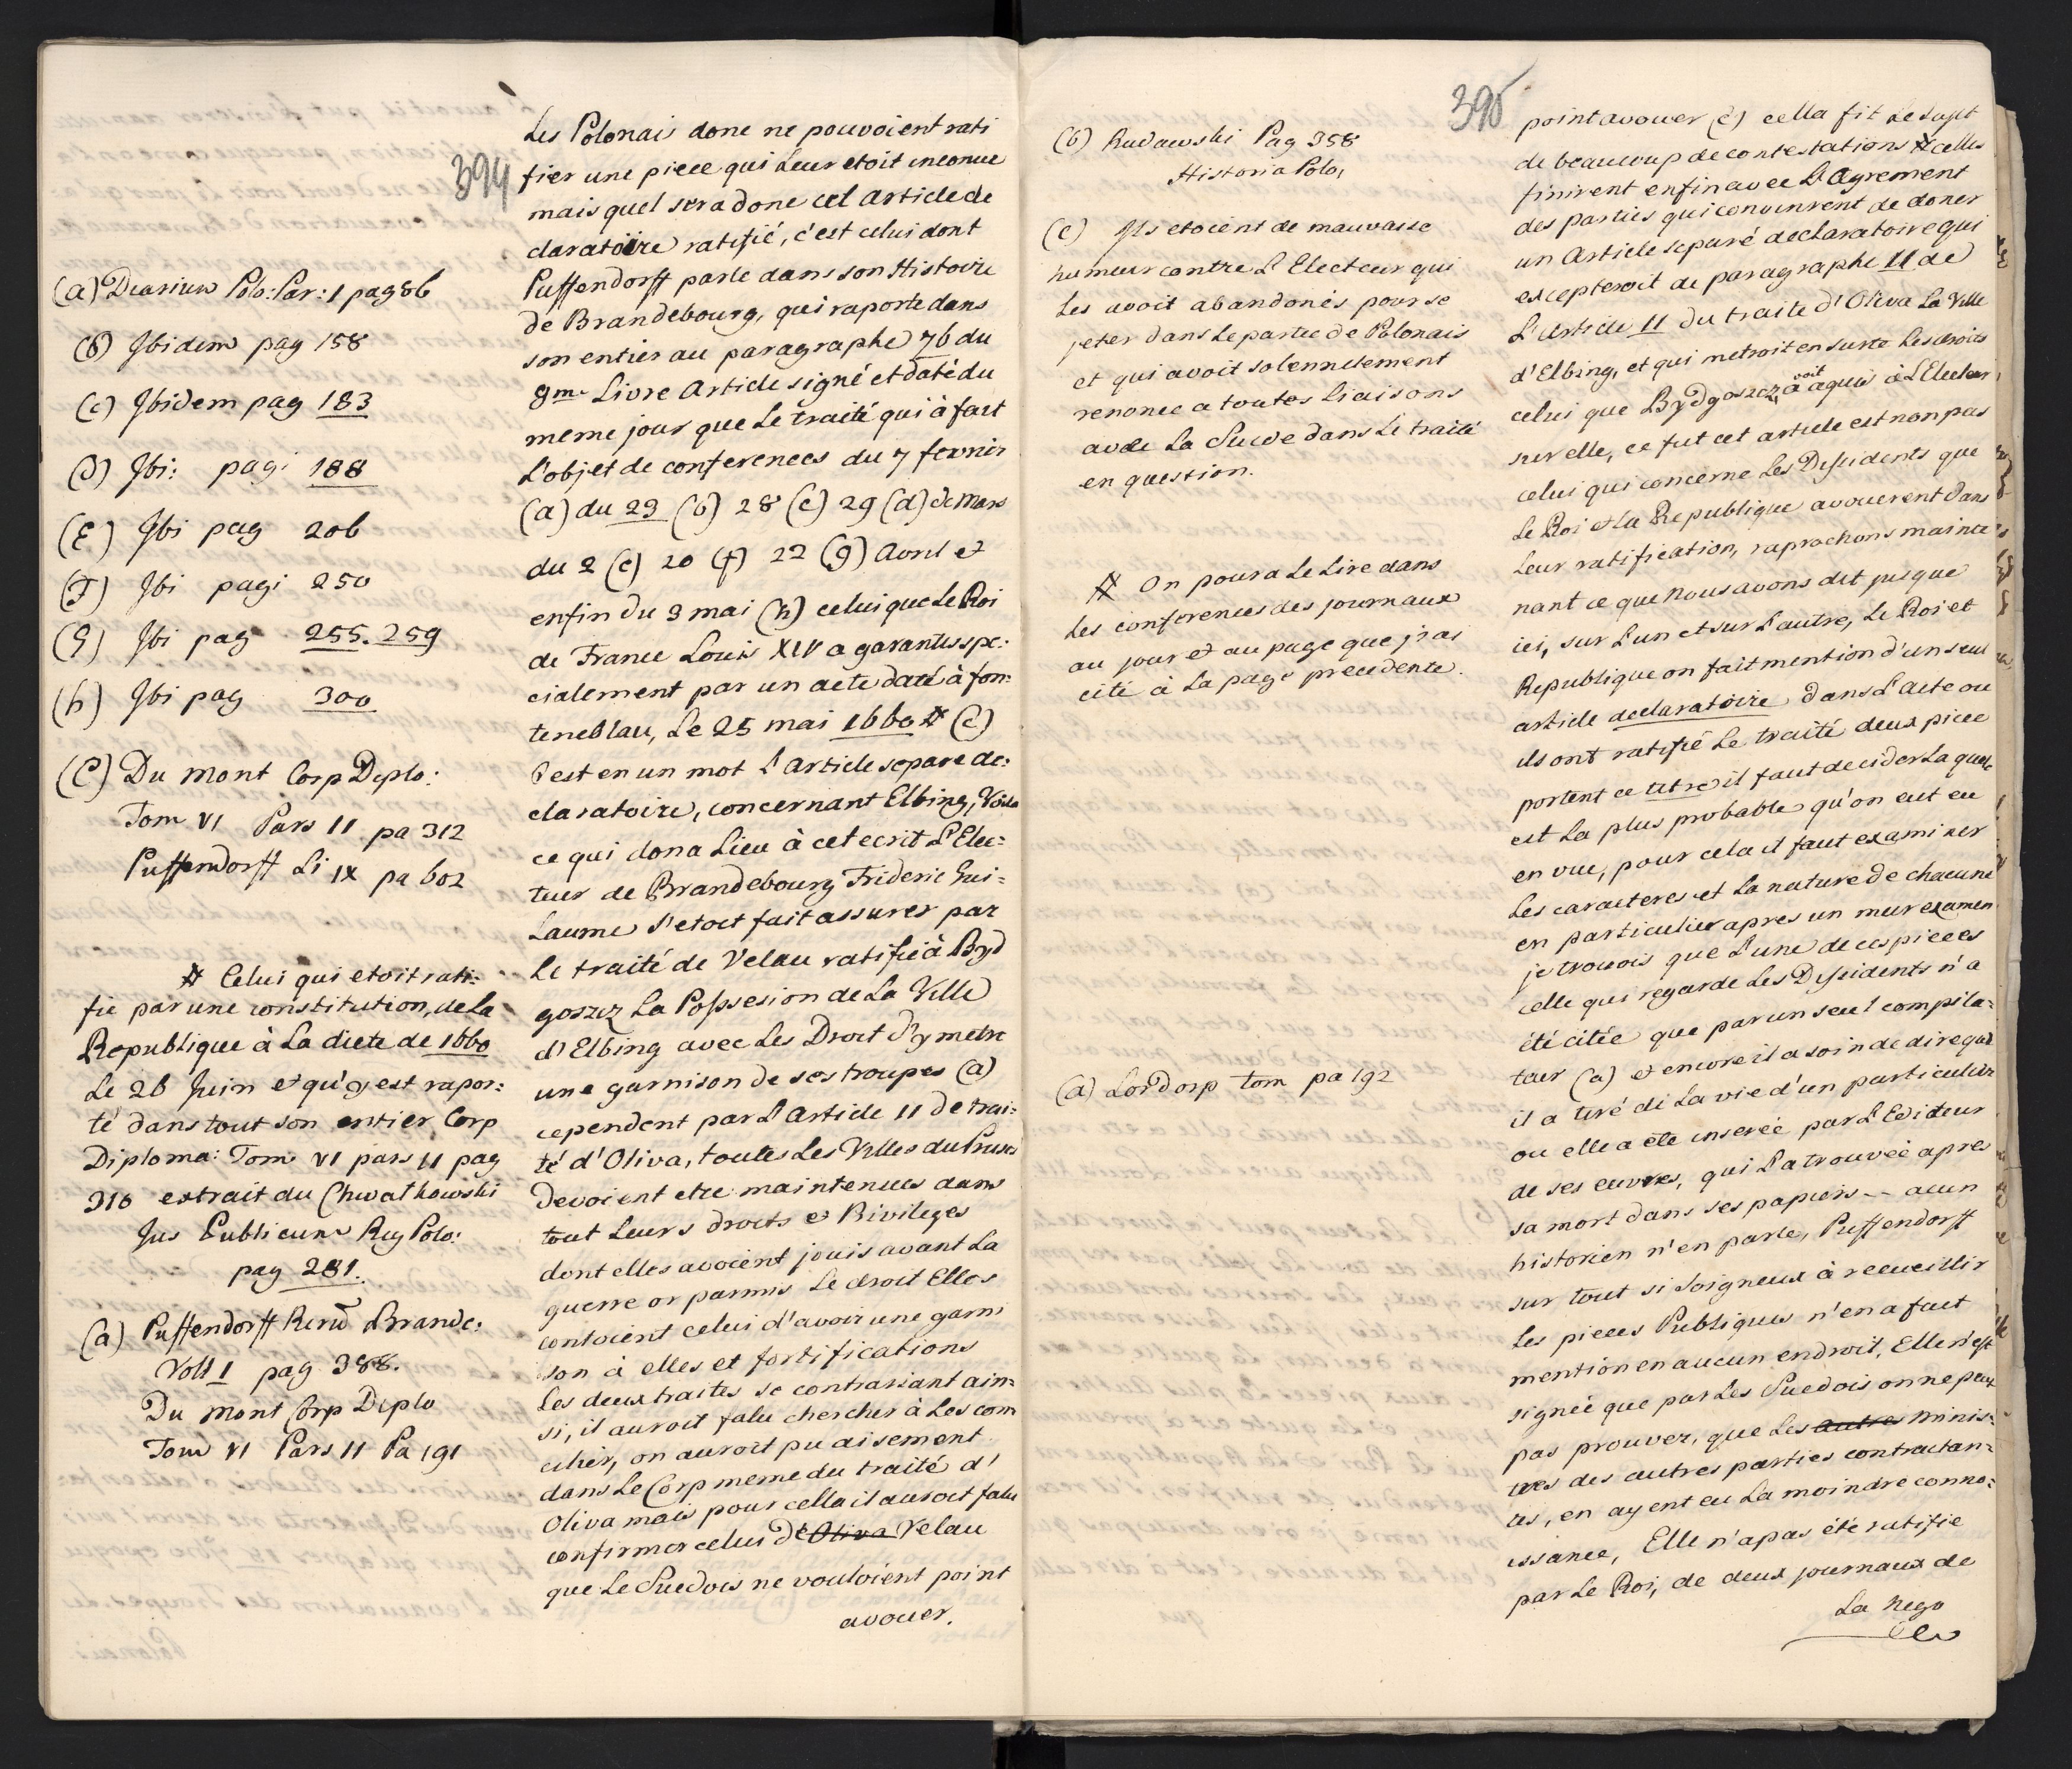 394
Les Polonais donc ne pouvoient rati
fier une piece qui Leur etoit inconue
mais quel sera donc cet Article de
claratoire ratifié, c'est celui dont
Puffendorff parle dans son Histoire
de Brandebourg, qui raporte dans
son entier au paragraphe 76 du
9me Livre Article signé et daté du
meme jour que Le traité qui à fait
L'objet de conferences du 7 fevrier
(a) du 23 (b) 28 (c) 29 (d) de Mars
du 2 (e) 20 (f) 22 (g) Avril et
enfin du 3 mai (h) celui que Le Roi
de France Louis XIV a garantis spe:
cialement par un acte daté à fon:
teneblau, Le 25 mai 1660 # (c)
C'est en un mot L'Article separe de:
claratoire, concernant Elbing, Voila
ce qui dona Lieu à cet ecrit L'Elec:
teur de Brandebourg Frideric Gui=
Laume s'etoit fait assurer par
Le traité de Velau ratifié à Byd
goszcz La Possesion de La Ville
d'Elbing avec Les Droit d'y metre
une garnison de ses troupes (a)
cependent par L'Article 11 de trai:
té d'Oliva, toutes Les Villes du Prusse
devoient etre maintenues dans
tout Leurs droits et Privileges
dont elles avoient jouis avant La
guerre or parmis Le droit Elles
contoient celui d'avoir une garni
son à elles et fortifications
Les deux traites se contrariant ain:
si, il auroit falu chercher à Les con
cilier, on auroit pu aisement
dans Le Corp meme du traité d'
Oliva mais pour cella il auroit falu
confirmer celui de Oliva Velau
que Le Suedois ne vouloient point
avouer.
(a) Diarium Polo: Par: 1 pag 86
(b) Ibidem pag 158
(c) Ibidem pag 183
(d) Ibi: pagi 188
(E) Ibi pag 206
(F) Ibi pagi 250
(G) Ibi pag 255. 259
(h) Ibi pag 300
(C) Du Mont Corp Diplo:
Tom VI Pars 11 pa 312
Puffendorff Li IX pa 602
# Celui qui etoit rati:
fie par une constitution, de La
Republique à La diete de 1660
Le 26 Juin et qu'y est rapor:
té dans tout son entier Corp
Diploma: Tom VI pars 11 pag
316 extrait du Chwatkowski
Jus Publicum Reg Polo:
pag 281.
(a) Puffendorff Rerũ Brande:
Voll 1 pag 388.
Du Mont Corp Diplo
Tom VI Pars 11 Pa 191
395
point avouer (b) cella fit Le sujet
de beaucoup de contestations # celles
finirent enfin avec L'Agrement
des parties qui convinrent de doner
un Article separé declaratoire qui
excepteroit du paragraphe 11 de
L'Article 11 du traite d'Oliva La Ville
d'Elbing, et qui metroit en surte Les droits
celui que Bydgoszcz avoit aquis à L'Electeur,
sur elle, ce fut cet article est non pas
celui qui concerne Les Dissidents que
Le Roi et La Republique avouerent dans
Leur ratification, raprochons mainte
nant ce que nous avons dit jusque
ici, sur L'un et sur L'autre, Le Roi et
Republique on fait mention d'un seul
article declaratoire dans L'acte ou
ils ont ratifié Le traité deux piece
portent ce titre il faut decider La quele
est La plus probable qu'on eut eu
en vue, pour cela il faut examiner
Les caracteres et La nature de chacune
en particulier apres un meur examen
je trouvois que L'une de ces pieces
celle qui regarde Les Dissidents n'a
été citée que par un seul compila:
teur (a) et encore il a soin de dire que
il a tiré di La vie d'un particulier
ou elle a été inserée par L'Editeur
de ses euvres, qui L'a trouvée apres
sa mort dans ses papiers -- acun
historien n'en parle, Puffendorff
sur tout si soigneux à recueillir
Les pieces Publiques n'en a fait
mention en aucun endroit, Elle n'est
signée que par Les Suedois on ne peut
pas prouver, que Les autres minis:
tres des autres parties contractan:
tes, en ayent eu La moindre conno:
issance, Elle n'a pas été ratifie
par Le Roi, de deux journaux de
La nego
(b) Rudawski Pag 358
Historia Polo,
(c) Ils etoient de mauvaise
humeur contre L'Electeur qui
Les avoit abandonés pour se
jeter dans Le partie de Polonais
et qui avoit solennelement
renoncé a toutes liaisons
avec La Suede dans Le traité
en question.
# On poura Le Lire dans
Les conferences des journaux
au jour et au page que j'ai
cité à La page precedente.
(a) Lordorp tom pa 192